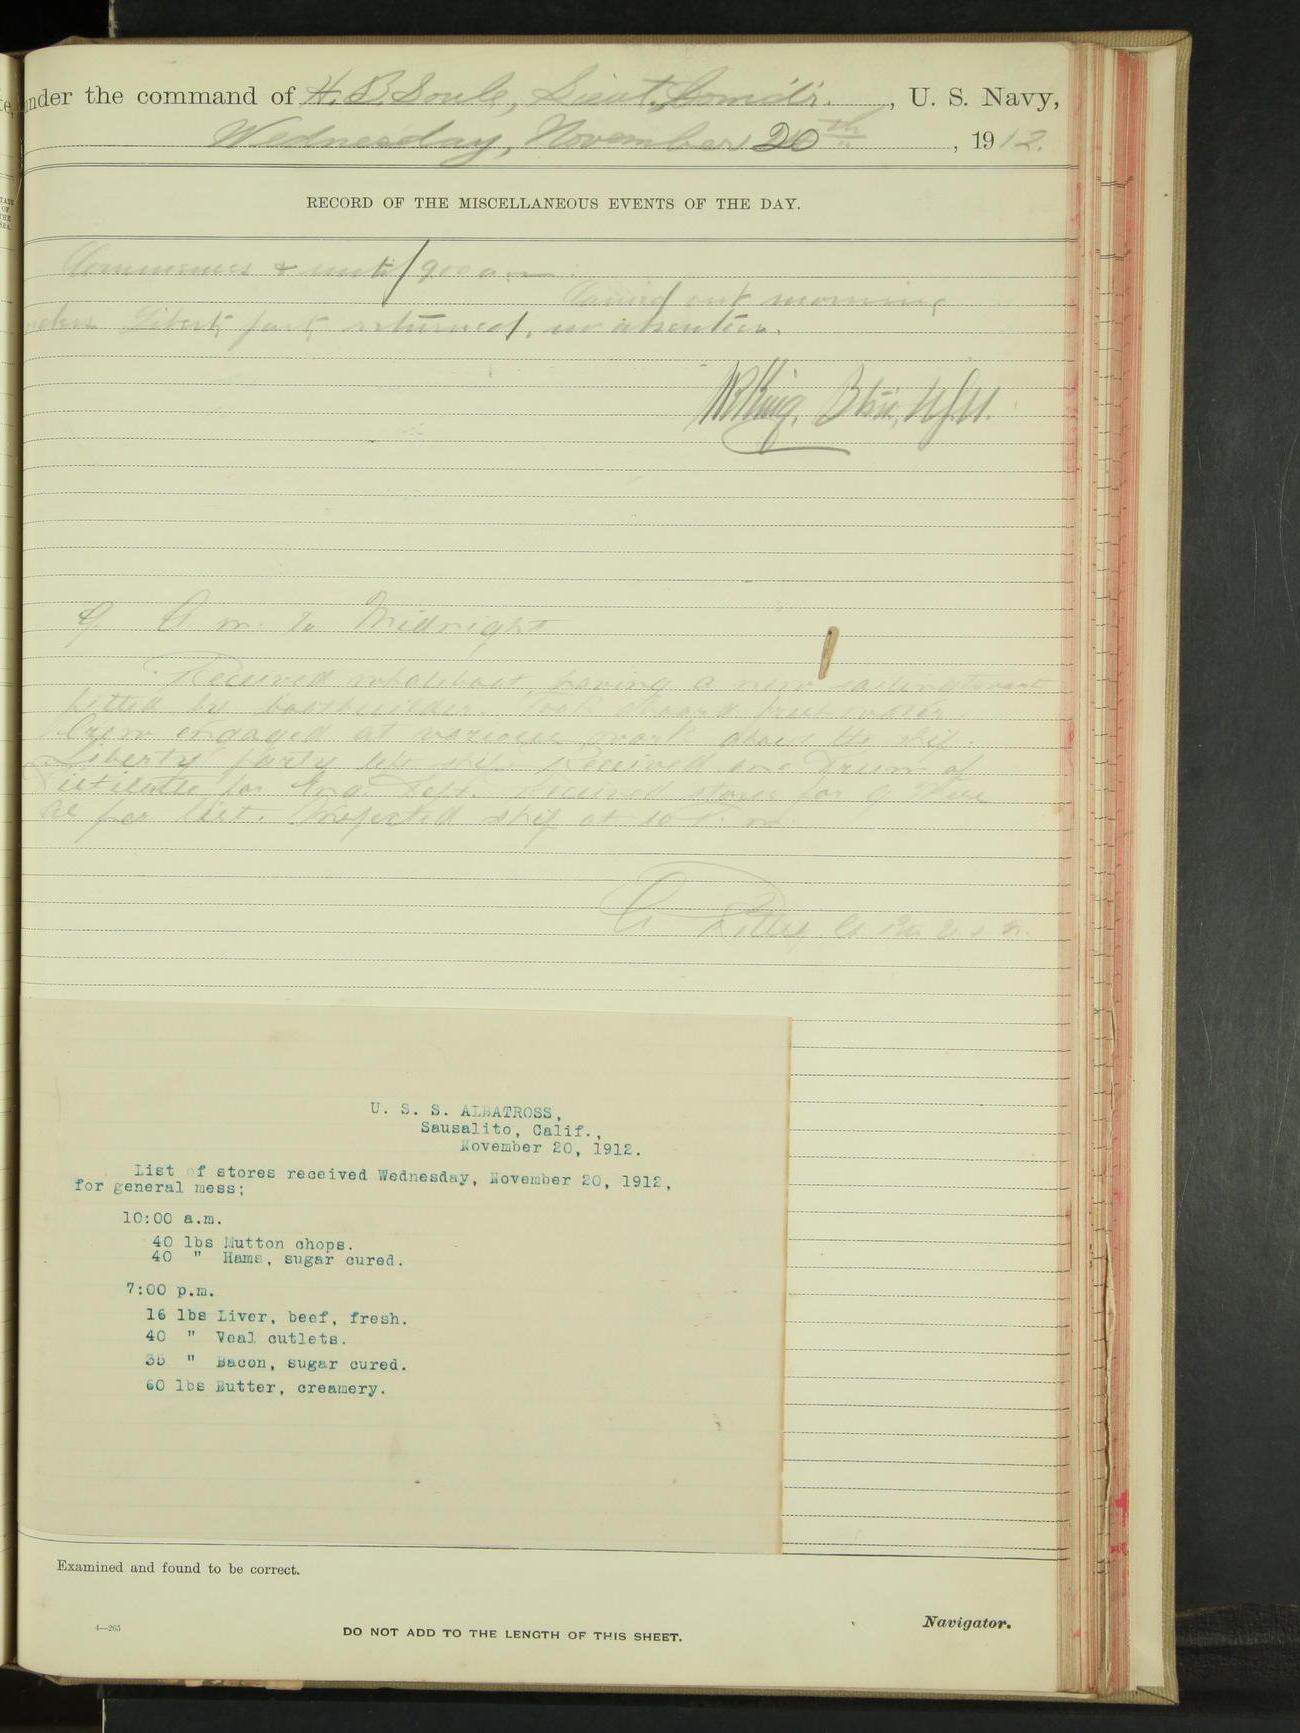 under the command of H. B. Soule, Lieut. Comd'r., U. S. Navy,
Wednesday, November 20th, 1912.
RECORD OF THE MISCELLANEOUS EVENTS OF THE DAY.
Commences & until 9:00 a.m.
Carried out morning
orders Liberty party returned, no absentees.
King, Btsn, U.S.N.
9 A m. to Midnight
Received whaleboat having a new
fitted by boatbuilder. Took aboard fresh water
Crew engaged at various work about the ship.
Liberty party left ship. Received one drum of
for Eng. Dept. Received stores for G Mess
as per list. Inspected ship at 10 P. m.
U. S. S. ALBATROSS,
Sausalito, Calif.,
November 20, 1912.
List of stores received Wednesday, November 20, 1912,
for general mess;
10:00 a.m.
40 lbs Mutton chops.
40 " Hams, sugar cured.
7:00 p.m.
16 lbs Liver, beef, fresh.
40 " Veal cutlets.
35 " Bacon, sugar cured.
60 lbs Butter, creamery.
Examined and found to be correct.
4—265
DO NOT ADD TO THE LENGTH OF THIS SHEET.
Navigator.